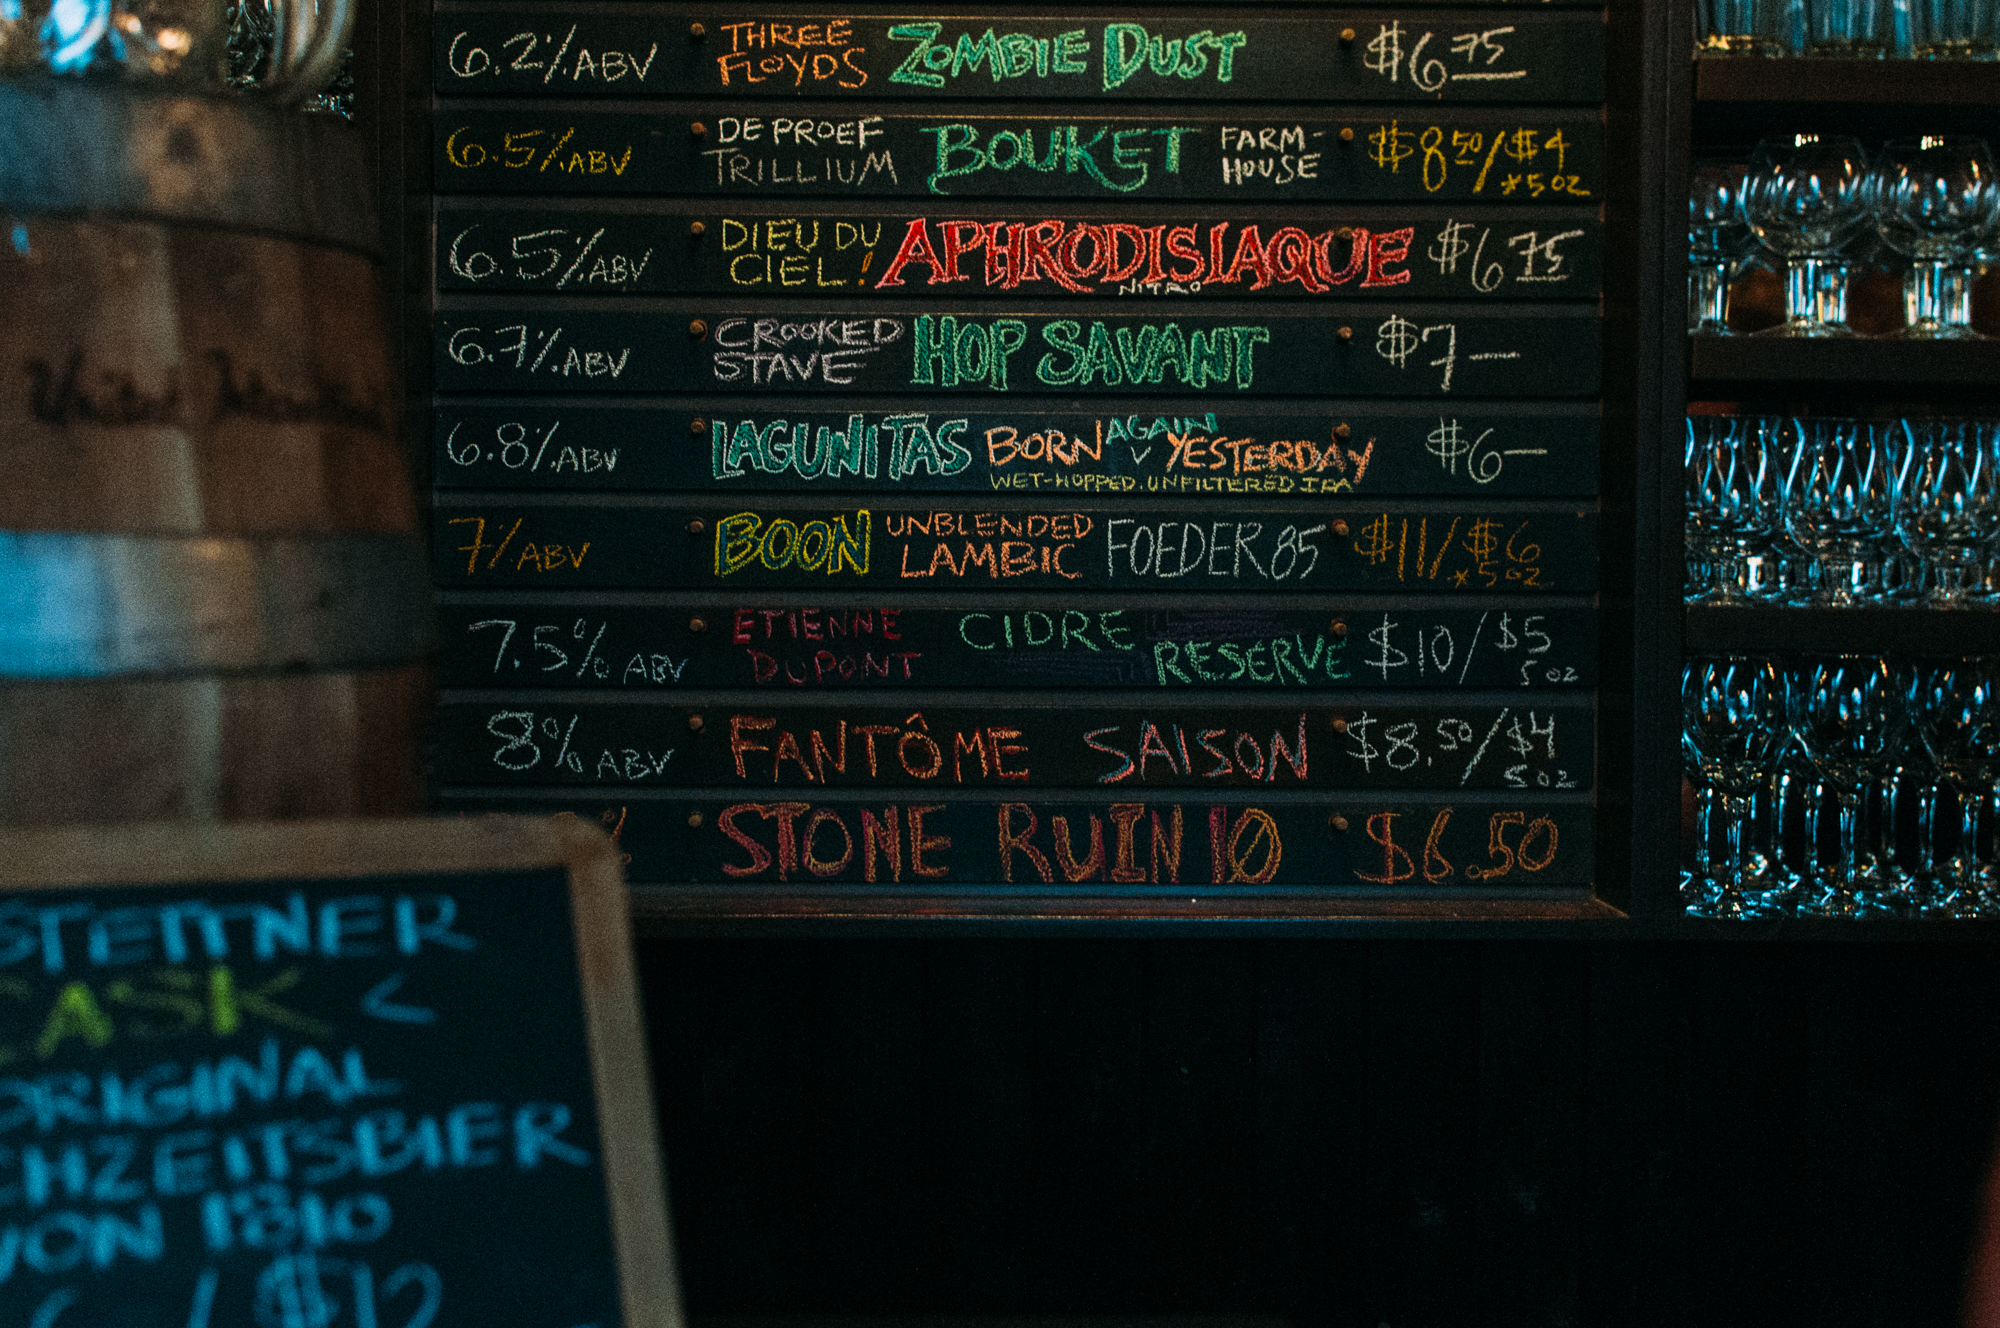 6.2% ABV THREE FLOYDS ZOMBIE DUST $6 75
6.5% ABV DE PROEF TRILLIUM BOUKET FARM-HOUSE $8 50/$4 *5 OZ
6.5% ABV DIEU DU CIEL! APHRODISIAQUE NITRO $6 75
6.7% ABV CROOKED STAVE HOP SAVANT $7—
6.8% ABV LAGUNITAS BORN AGAIN YESTERDAY $6—
WET-HOPPED, UNFILTERED IPA
7% ABV BOON UNBLENDED LAMBIC FOEDER 85 $11/$6 *5 OZ
7.5% ABV ETIENNE DUPONT CIDRE RESERVE $10/$5 5 OZ
8% ABV FANTÔME SAISON $8.50/$4 5 OZ
% STONE RUIN 10 $6.50
STEITNER
CASK <
ORIGINAL
CHZEITSBIER
VON 1810
/ $12